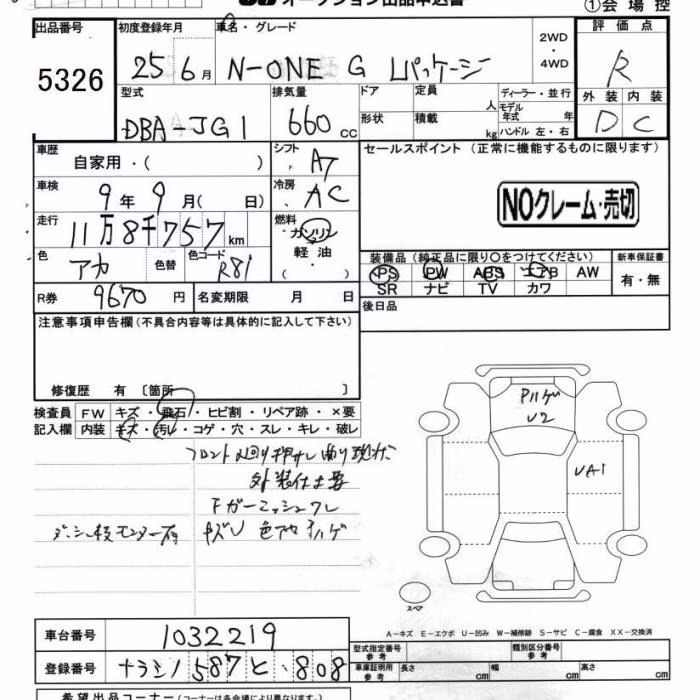 オークション出品申込書
①会場控
出品番号 5326
初度登録年月 25年6月
車名・グレード N-ONE G Lパッケージ
2WD・4WD
評価点 R
外装 D 内装 C
型式 DBA-JG1
排気量 660cc
ドア 形状
定員 人 積載 kg
ディーラー・並行
モデル年式 年
ハンドル 左・右
車歴 自家用・( )
シフト AT
セールスポイント (正常に機能するものに限ります)
NOクレーム・売切
車検 9年9月(日)
冷房 AC
走行 11万8千757km
燃料 ガソリン 軽油
色 アカ 色替 色コード R81
装備品 (純正品に限り○をつけてください)
PS PW ABS エアB AW
SR ナビ TV カワ
新車保証書 有・無
R券 9670円 名変期限 月 日
後日品
注意事項申告欄(不具合内容等は具体的に記入して下さい)
修復歴 有 〔箇所 〕
検査員記入欄
FW キズ・飛石・ヒビ割・リペア跡・×要
内装 キズ・汚レ・コゲ・穴・スレ・キレ・破レ
フロント廻り押し曲り現状
外装仕上要
Fガーニッシュワレ
キズU 色アセ ハゲ
Pハゲ
U2
UA1
スペア
A-キズ E-エクボ U-凹み W-補修跡 S-サビ C-腐食 XX-交換済
車台番号 1032219
登録番号 ナラシノ 587 と・808
型式指定番号 参考
類別区分番号 参考
車庫証明用 参考 長さ cm 幅 cm 高さ cm
希望出品コーナー(コーナーは各会場により異なります。)